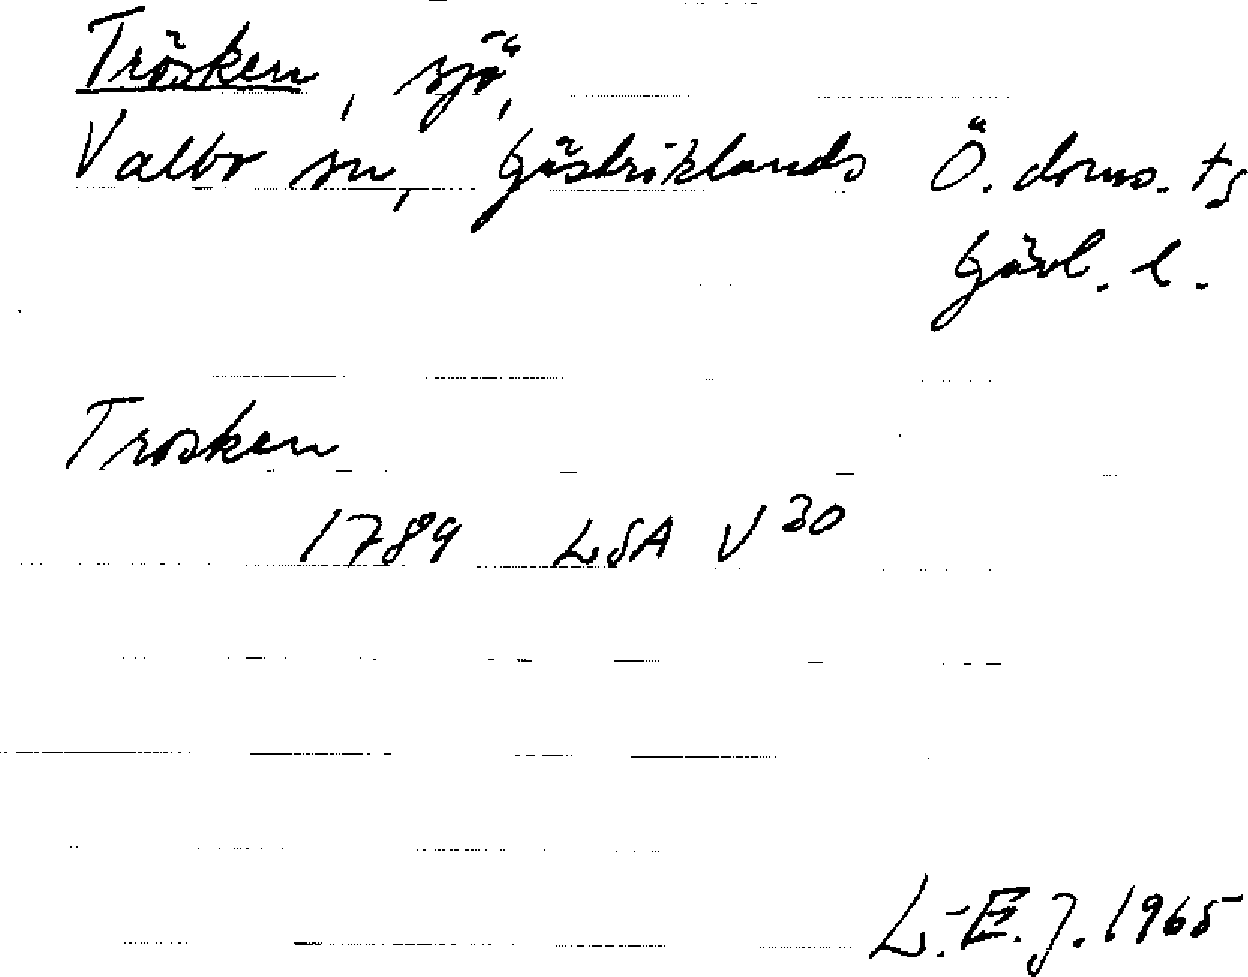 Trösken, sjö,
Valbo sn, Gästriklands Ö. doms. ts
Gävl. l.
Trosken
1789 LSA V 30
L.-E. J. 1965